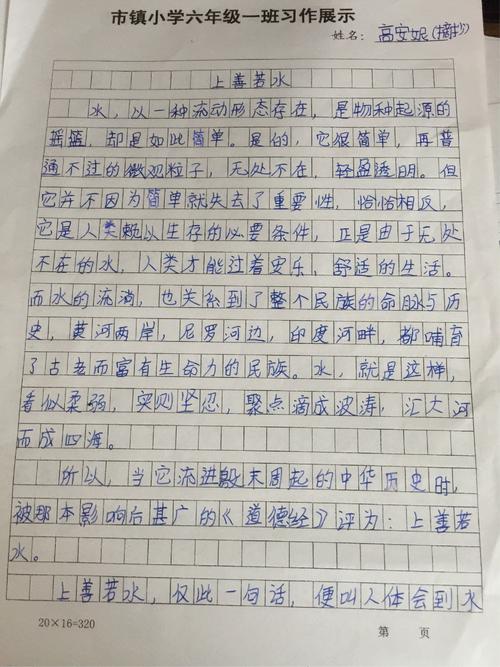 市镇小学六年级一班习作展示
姓名：高安妮(摘抄)
上善若水
水，以一种流动形态存在，是物种起源的
摇篮，却是如此简单。是的，它很简单，再普
通不过的微观粒子，无处不在，轻盈透明。但
它并不因为简单就失去了重要性，恰恰相反，
它是人类赖以生存的必要条件，正是由于无处
不在的水，人类才能过着安乐、舒适的生活。
而水的流淌，也关系到了整个民族的命脉与历
史，黄河两岸，尼罗河边，印度河畔，都哺育
了古老而富有生命力的民族。水，就是这样，
看似柔弱，实则坚忍，聚点滴成波涛，汇大河
而成四海。
所以，当它流进殷末周起的中华历史时，
被那本影响后甚广的《道德经》评为：上善若
水。
上善若水，仅此一句话，便叫人体会到水
20×16=320
第 页